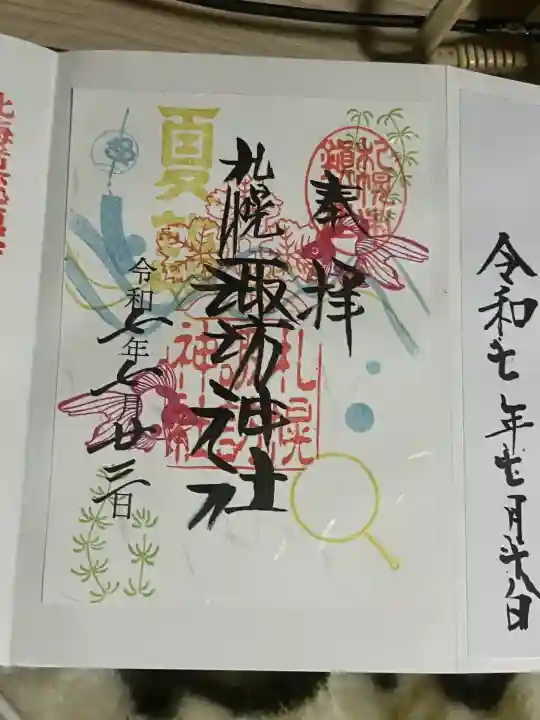 令和七年七月廿八日
奉拝
札幌諏訪神社
夏詣
令和七年七月廿三日
札幌諏訪神社